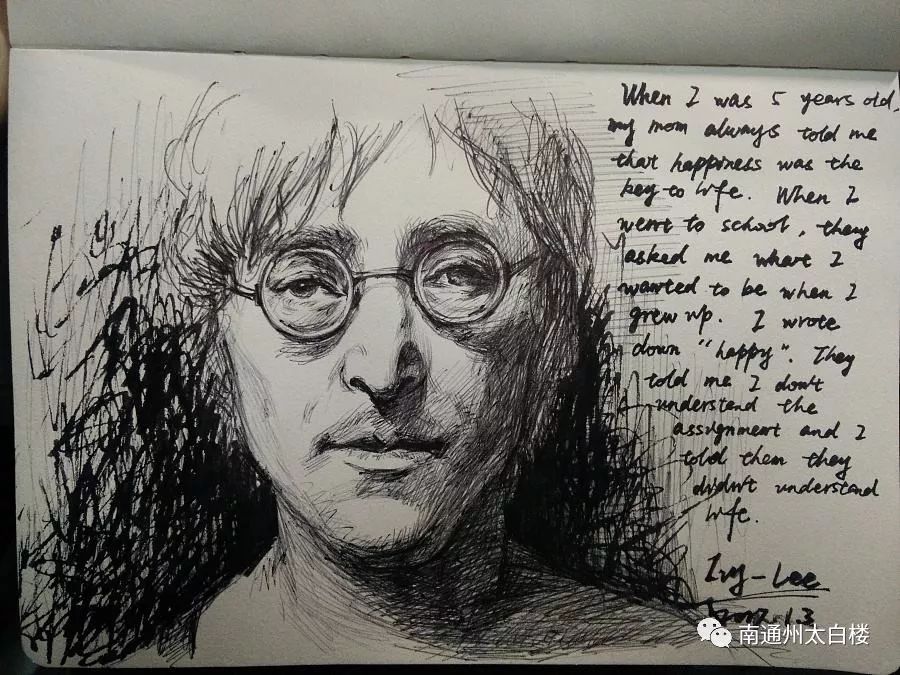 When I was 5 years old,
my mom always told me
that happiness was the
key to life. When I
went to school, they
asked me what I
wanted to be when I
grew up. I wrote
down "happy". They
told me I don't
understand the
assignment and I
told them they
didn't understand
life.
Ivy-Lee
南通州太白楼